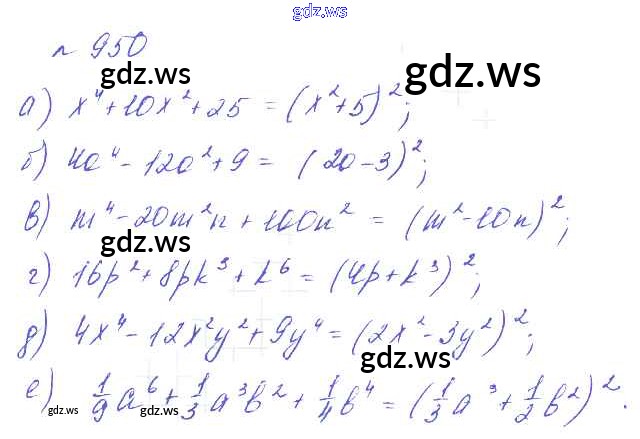 gdz.ws
n 950
gdz.ws gdz.ws
а) x⁴+10x²+25 = (x²+5)²;
б) 4a⁴-12a²+9 = (2a-3)²;
в) m⁴-20m²n+100n² = (m²-10n)²;
gdz.ws
г) 16p²+8pk³+k⁶ = (4p+k³)²;
д) 4x⁴-12x²y²+9y⁴ = (2x²-3y²)²;
gdz.ws
е) 1/9a⁶+1/3a³b²+1/4b⁴ = (1/3a³+1/2b²)².
gdz.ws gdz.ws gdz.ws